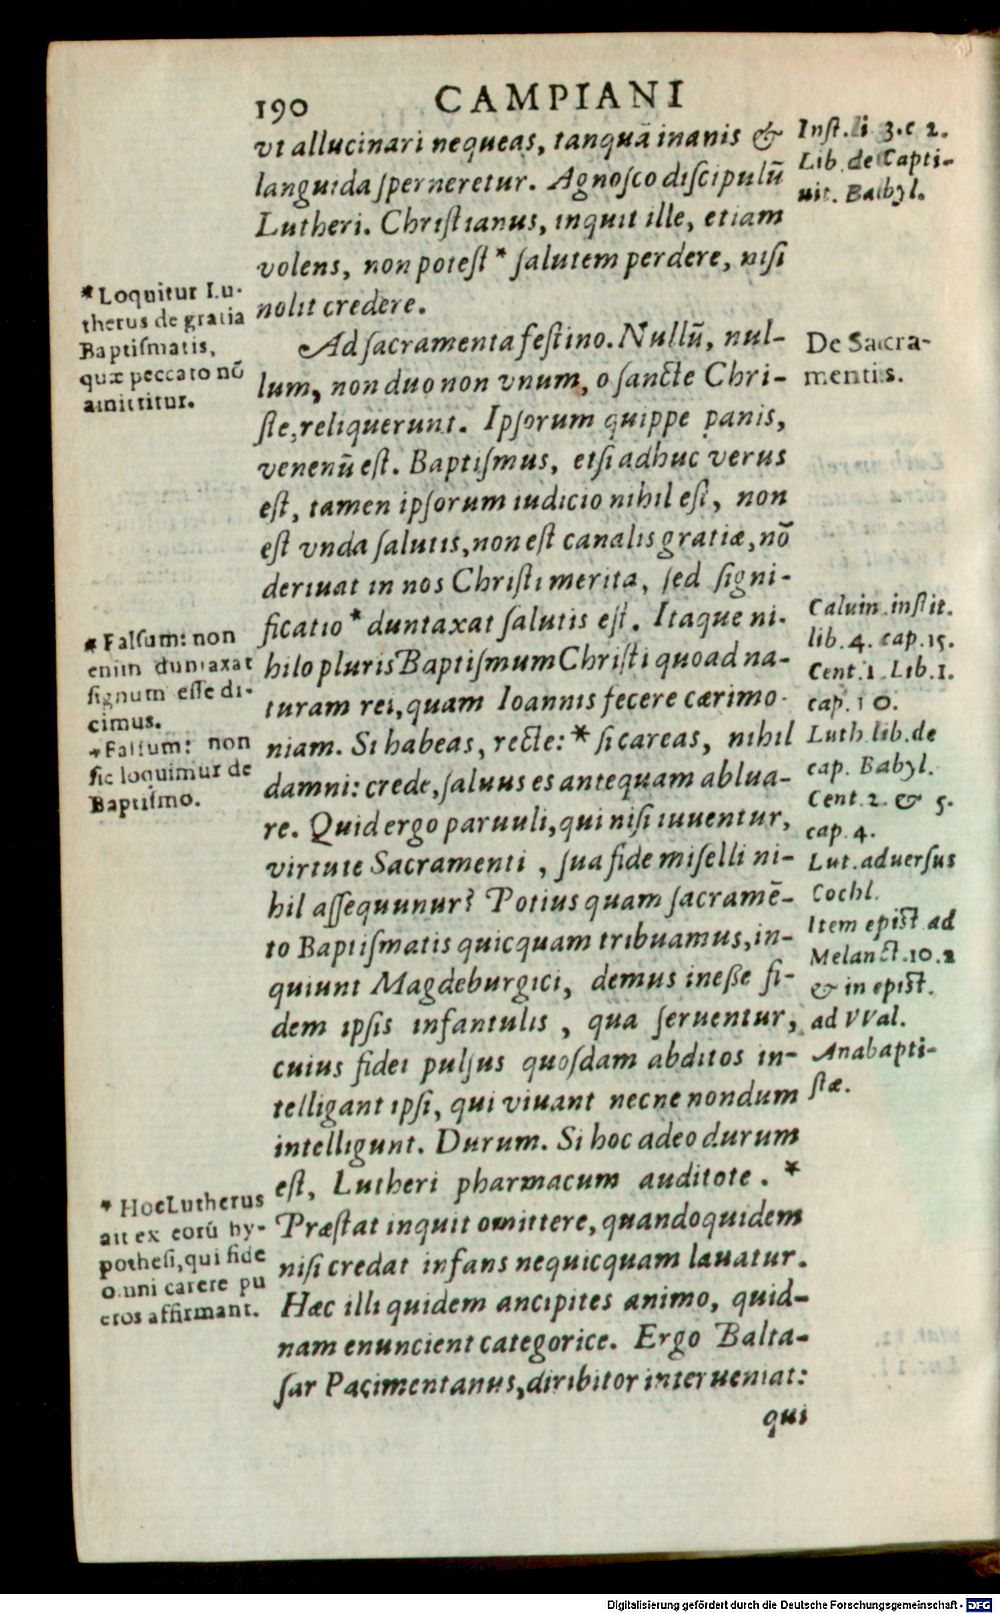 190 CAMPIANI
vt allucinari nequeas, tanquā inanis &
languida ſperneretur. Agnoſco diſcipulū
Lutheri. Chriſtianus, inquit ille, etiam
volens, non poteſt * ſalutem perdere, niſi
nolit credere.
Ad ſacramenta feſtino. Nullū, nul-
lum, non duo non vnum, o ſancte Chri-
ſte, reliquerunt. Ipſorum quippe panis,
venenū eſt. Baptiſmus, etſi adhuc verus
eſt, tamen ipſorum iudicio nihil eſt, non
eſt vnda ſalutis, non eſt canalis gratiæ, nō
deriuat in nos Chriſti merita, ſed ſigni-
ficatio * duntaxat ſalutis eſt. Itaque ni-
hilo pluris Baptiſmum Chriſti quoad na-
turam rei, quam Ioannis fecere cærimo-
niam. Si habeas, recte: * ſi careas, nihil
damni: crede, ſaluus es antequam ablua-
re. Quid ergo paruuli, qui niſi iuuentur,
virtute Sacramenti, ſua fide miſelli ni-
hil aſſequunur? Potius quam ſacramē-
to Baptiſmatis quicquam tribuamus, in-
quiunt Magdeburgici, demus ineße fi-
dem ipſis infantulis, qua ſeruentur,
cuius fidei pulſus quoſdam abditos in-
telligant ipſi, qui viuant necne nondum
intelligunt. Durum. Si hoc adeo durum
eſt, Lutheri pharmacum auditote. *
Præſtat inquit omittere, quandoquidem
niſi credat infans nequicquam lauatur.
Hæc illi quidem ancipites animo, quid-
nam enuncient categorice. Ergo Balta-
ſar Pacimentanus, diribitor interueniat:
qui
* Loquitur Lu-
therus de gratia
Baptiſmatis,
quæ peccato nō
amittitur.
* Falſum: non
enim duntaxat
ſignum eſſe di-
cimus.
* Falſum: non
ſic loquimur de
Baptiſmo.
* Hoc Lutherus
ait ex eorū hy-
potheſi, qui fide
omni carere pu
eros affirmant.
Inſt. li. 3. c 2.
Lib. de Capti-
uit. Babyl.
De Sacra-
mentis.
Caluin. inſtit.
lib. 4. cap. 15.
Cent. 1. Lib. 1.
cap. 10.
Luth. lib. de
cap. Babyl.
Cent. 2. & 5.
cap. 4.
Lut. aduerſus
Cochl.
Item epiſt. ad
Melanct. 10. 2
& in epiſt.
ad VVal.
Anabapti-
ſtæ.
Digitalisierung gefördert durch die Deutsche Forschungsgemeinschaft - DFG